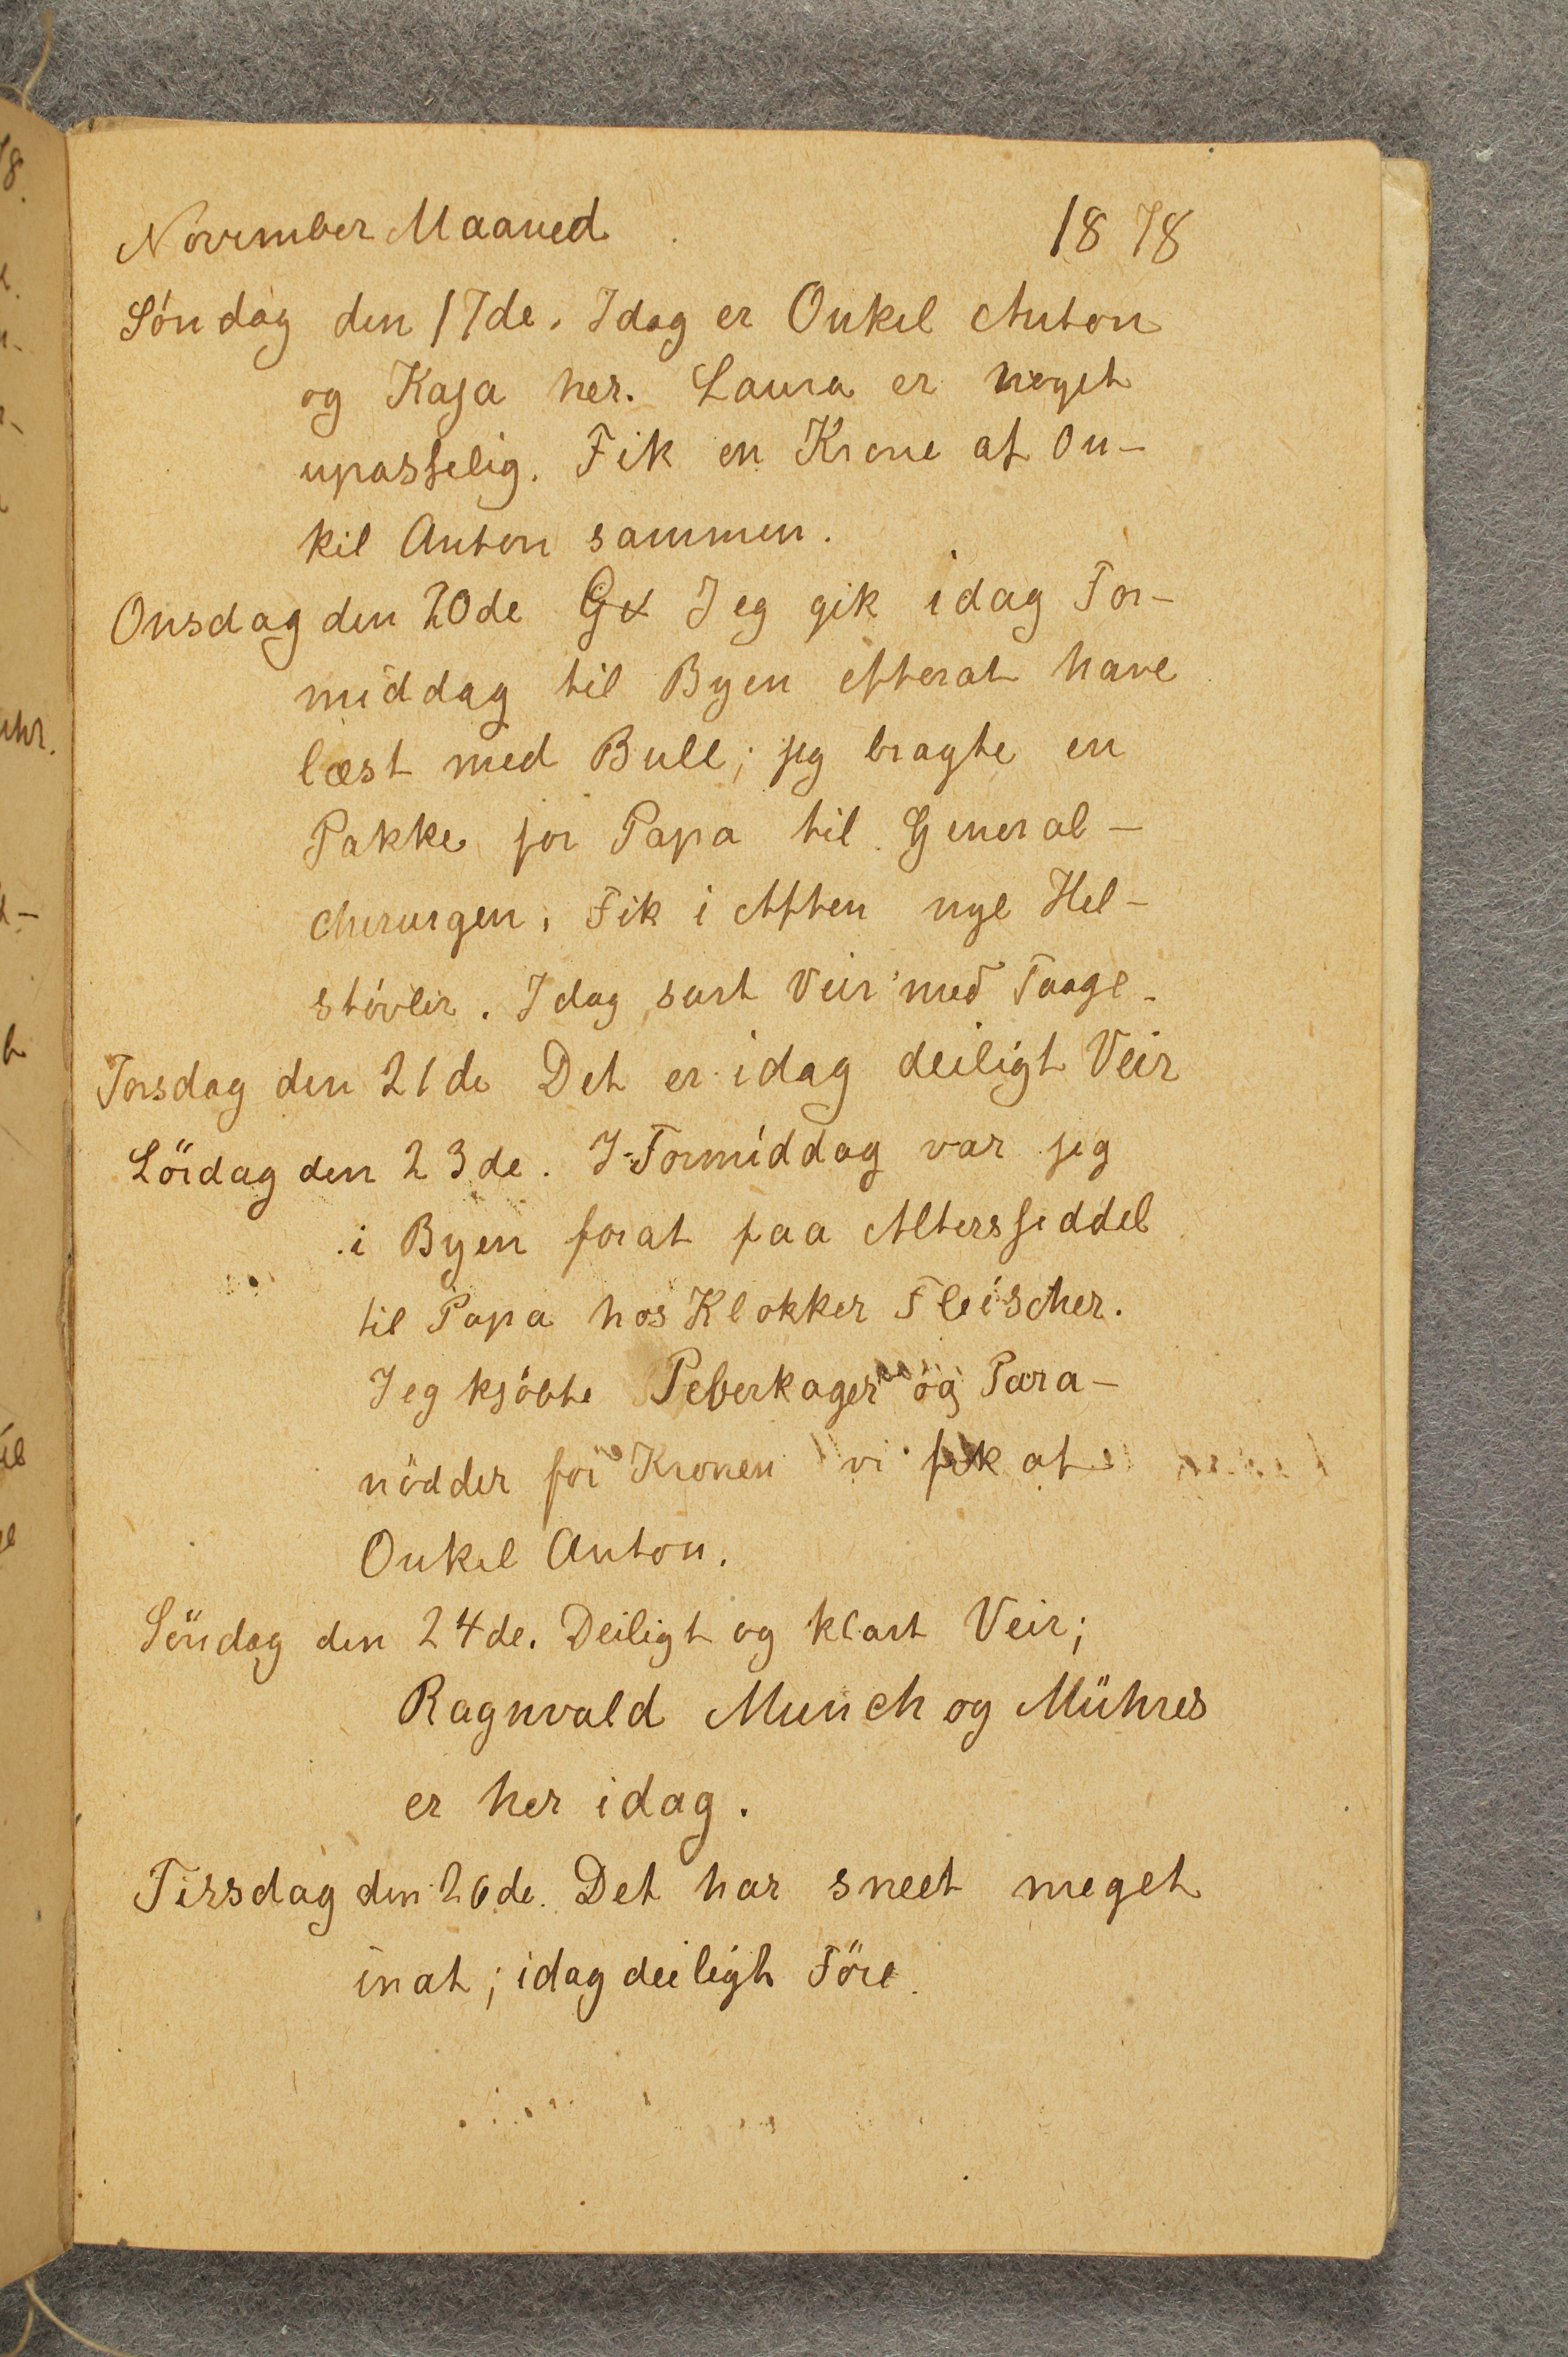 November Maaned 1878
Söndag den 17de. Idag er Onkel Anton
og Kaja her. Laura er noget
upasselig. Fik en Krone af On-
kel Anton sammen.
Onsdag den 20de Jeg gik idag For-
middag til Byen efterat have
læst med Bull; jeg bragte en
Pakke for Papa til General-
chirurgen. Fik i Aften nye Hel-
støvler. Idag surt Veir med Taage.
Torsdag den 21de Det er idag deiligt Veir
Lördag den 23de. I Formiddag var jeg
i Byen forat faa Altersseddel
til Papa hos Klokker Fleischer.
Jeg kjöbte Peberkager og Para-
nödder for Kronen vi fik af
Onkel Anton.
Söndag den 24de. Deiligt og klart Veir;
Ragnvald Munch og Mühres
er her idag.
Tirsdag den 26de. Det har sneet meget
inat; idag deiligt Före.